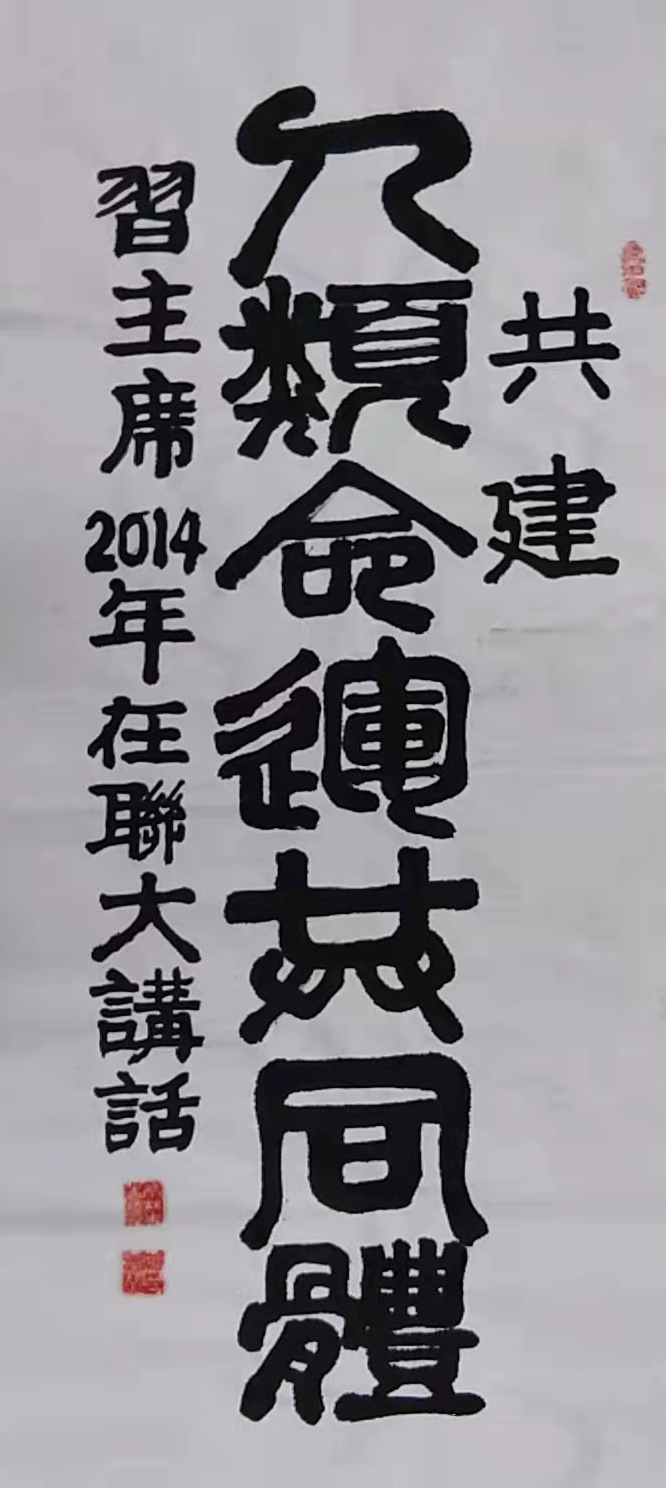 共建
人類命運共同體
習主席2014年在聯大講話